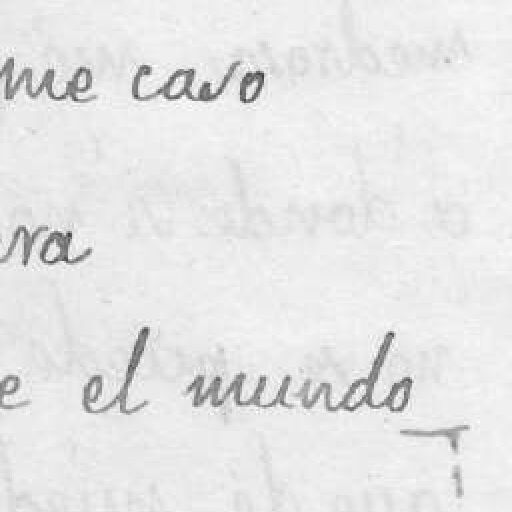 me caso
ra
e el mundo